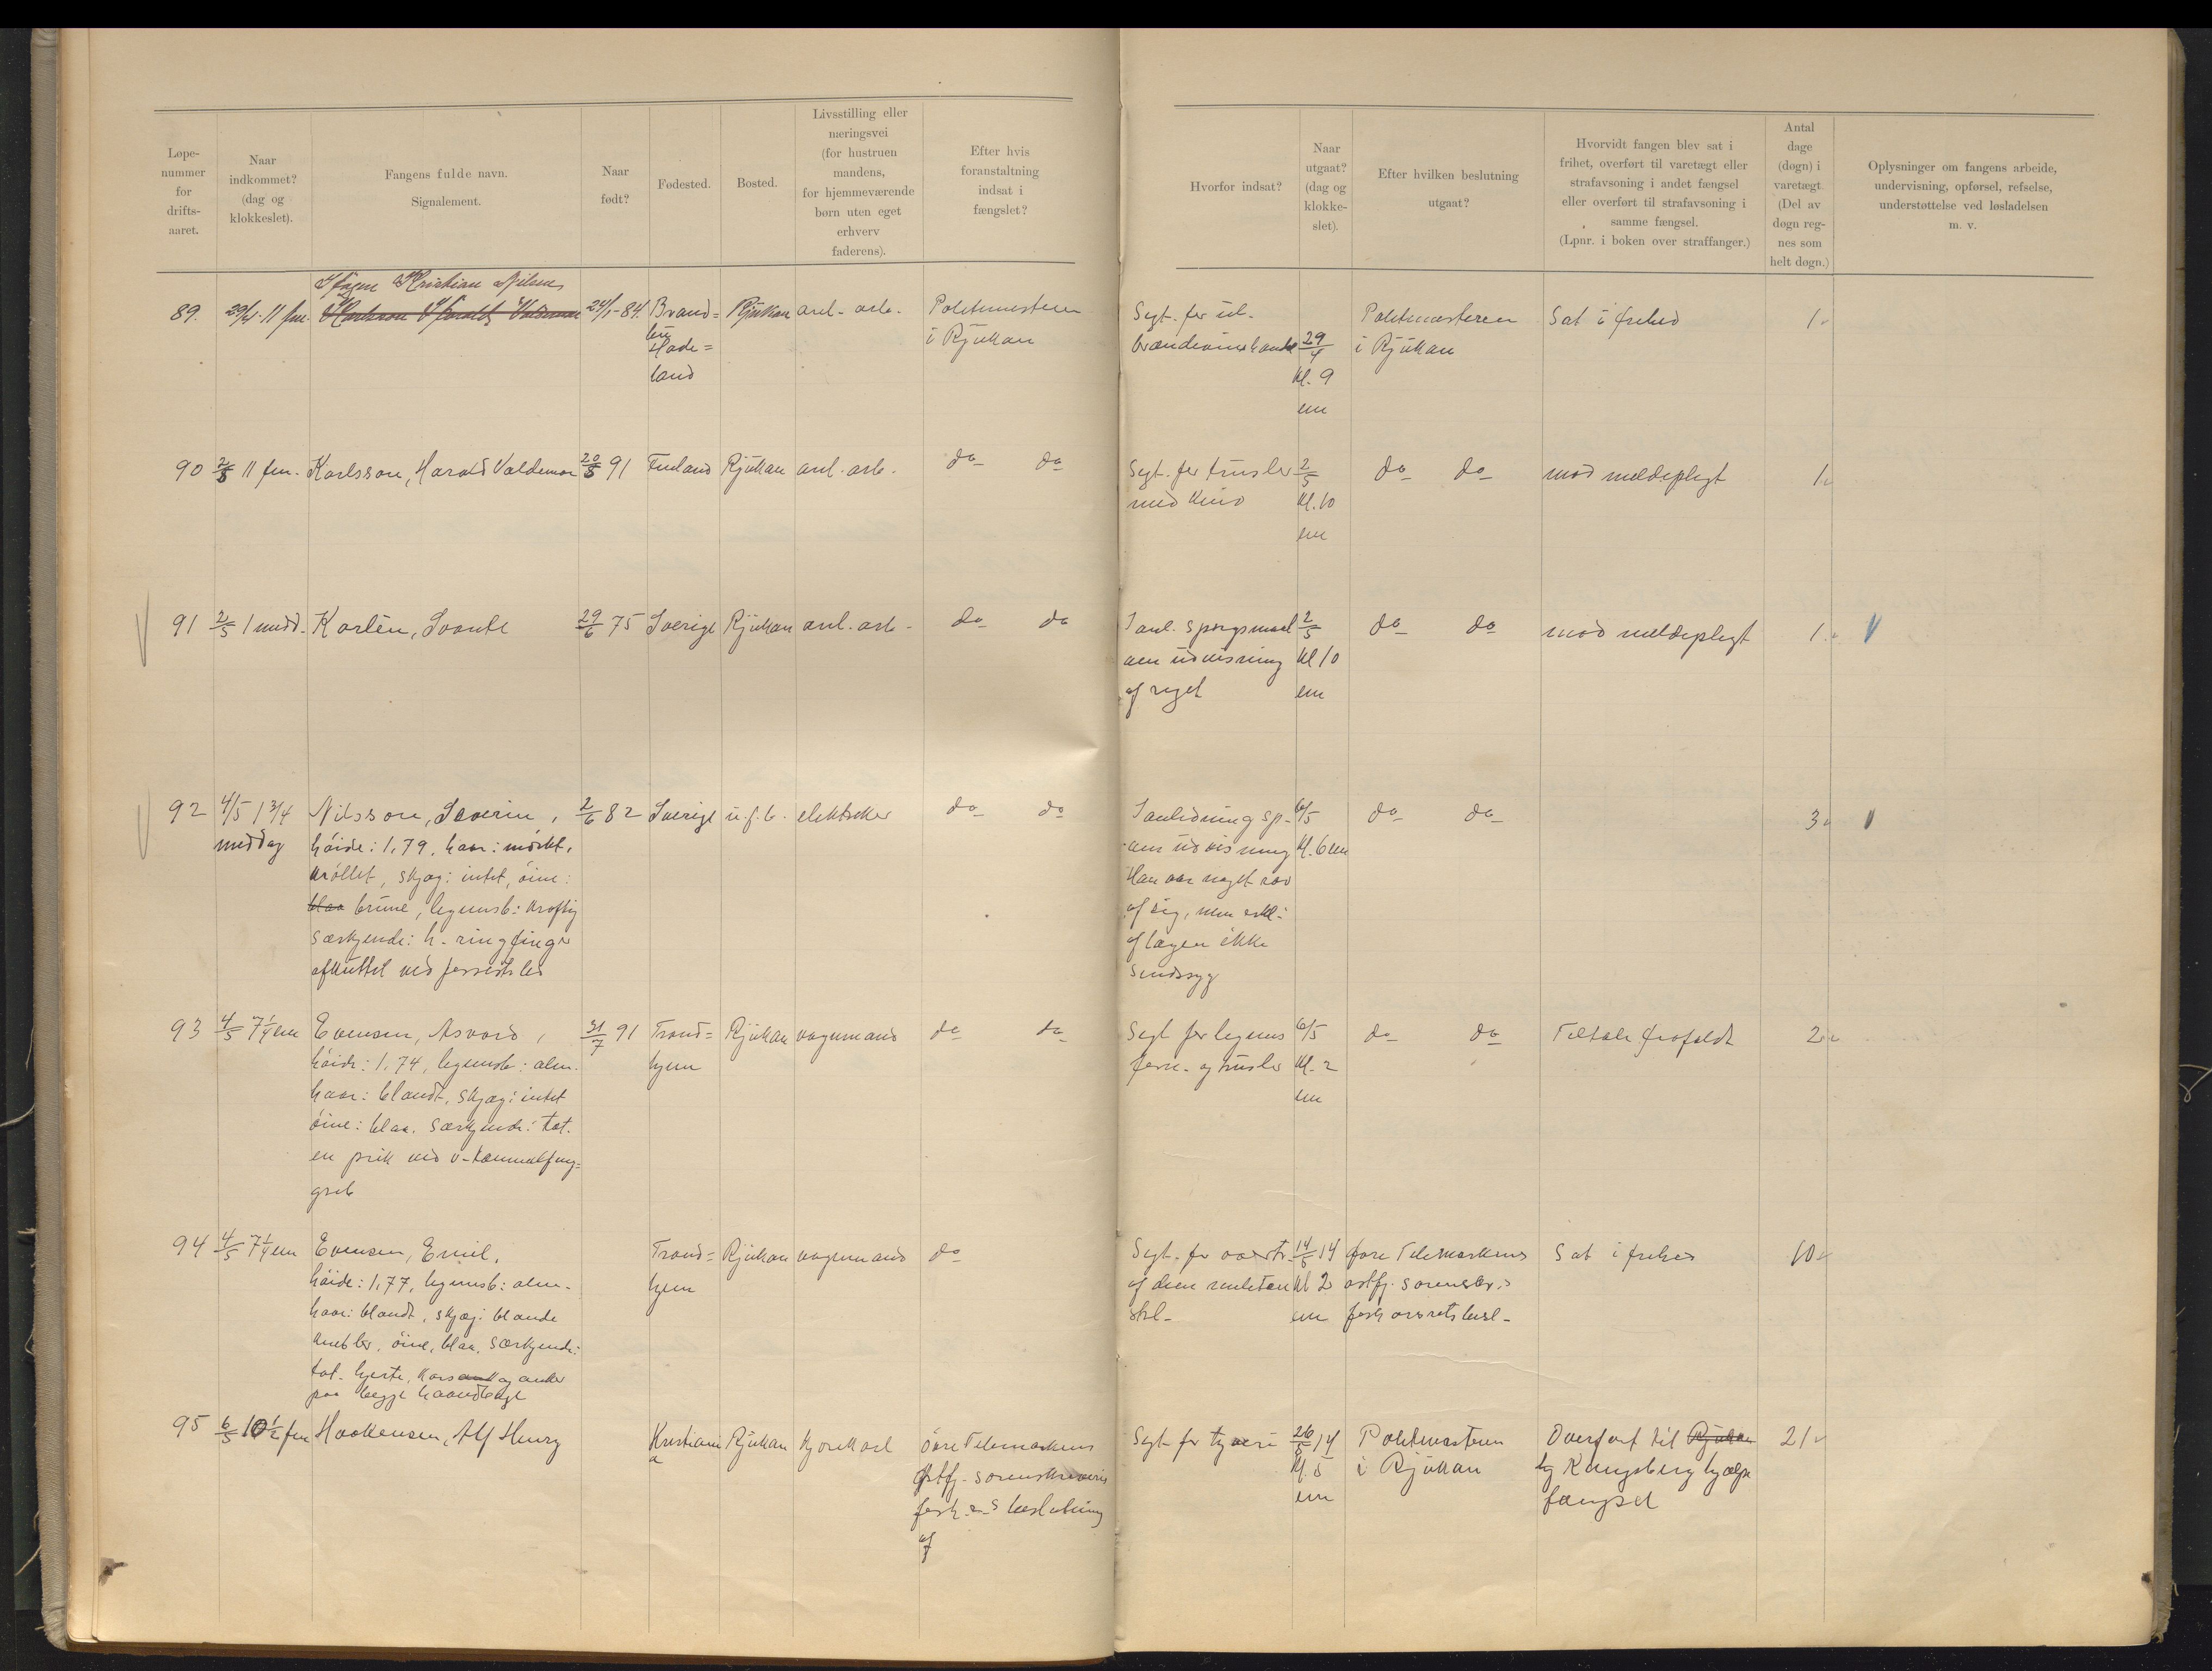 Løpe-
nummer
for
drifts-
aaret.
Naar
indkommet?
(dag og
klokkeslet).
Fangens fulde navn.
Signalement.
Naar
født?
Fødested.
Bosted.
Livsstilling eller
næringsvei
(for hustruen
mandens,
for hjemmeværende
børn uten eget
erhverv
faderens).
Efter hvis
foranstaltning
indsat i
fængslet?
Hvorfor indsat?
Naar
utgaat?
(dag og
klokke-
slet).
Efter hvilken beslutning
utgaat?
Hvorvidt fangen blev sat i
frihet, overført til varetægt eller
strafavsoning i andet fængsel
eller overført til strafavsoning i
samme fængsel.
(Lpnr. i boken over straffanger.)
Antal
dage
(døgn) i
varetægt
(Del av
døgn reg-
nes som
helt døgn.)
Oplysninger om fangens arbeide,
undervisning, opførsel, refselse,
understøttelse ved løsladelsen
m. v.
Kristian Nilsen
89. 29/4 11 fm. Karlsson Harald Valdemar 24/1-84. Brand= Rjukan anl. arb. Politimesteren
bu
Hade=
land
i Rjukan
Sigt. for ul.
brændevinshandel 29/4
Kl. 9
em
Politimesteren
i Rjukan
Sat i frihed
1
90 2/5 11 fm. Karlsson, Harald Valdemar 20/3 91 Finland Rjukan anl. arb. do do
Sigt. for trusler 2/5 do do mod meldepligt 1
med kniv Kl. 10
em
91 2/5 1 midd. Karlèn, Svante 29/6 75 Sverige Rjukan anl. arb. do do
I anl. spørgsmaal 2/5 do do mod meldepligt 1
om udvisning Kl 10
af riget em
92 4/5 1 3/4 Nilsson, Severin, 2/6 82 Sverige u. f. b. elektriker do do
middag høide: 1,79, haar: mørkt,
krøllet, skjæg: intet, øine:
blaa brune, legemsb: kraftig
særkjende: h. ringfinger
afkuttet ved første led
I anledning sp. 6/5 do do 3
om udvisning Kl. 6 em
Han var noget rar
af sig, men erkl.
af lægen ikke
sindssyg
93 4/5 7 1/4 em Evensen, Asvard, 31/7 91 Trond= Rjukan vognmand do do
høide: 1,74, legemsb: alm. hjem
haar: blandt, skjæg: intet
øine: blaa. særkjende: tat.
en prik ved v. tommelfing=
greb
Sigt for legems 6/5 do do Tiltale frafaldt 2
forn. og trusler Kl. 2
em
94 4/5 7 1/4 em Evensen, Emil. Trond= Rjukan vognmand do
høide: 1,77, legemsb: alm. hjem
haar: blandt, skjæg: blande
knebler, øine, blaa, særkjende:
tat. hjerte, kors og anker
paa begge haandbage
Sigt. for overtr. 14/5 14 øvre Telemarkens Sat i frihed 10
af den Kl 2 østfj. sorenskr.
em forhørsrets besl.
95 6/5 10 1/2 fm Haakensen, Alf Henry Kristiani Rjukan Kjørekarl øvre Telemarkens
a
østfj. sorenskriveris
beslutning
af
Sigt for tyveri 26/5 14 Politimesteren Overført til Rjukan 21
Kl. 5 i Rjukan Kongsberg hjælpe
em fængsel